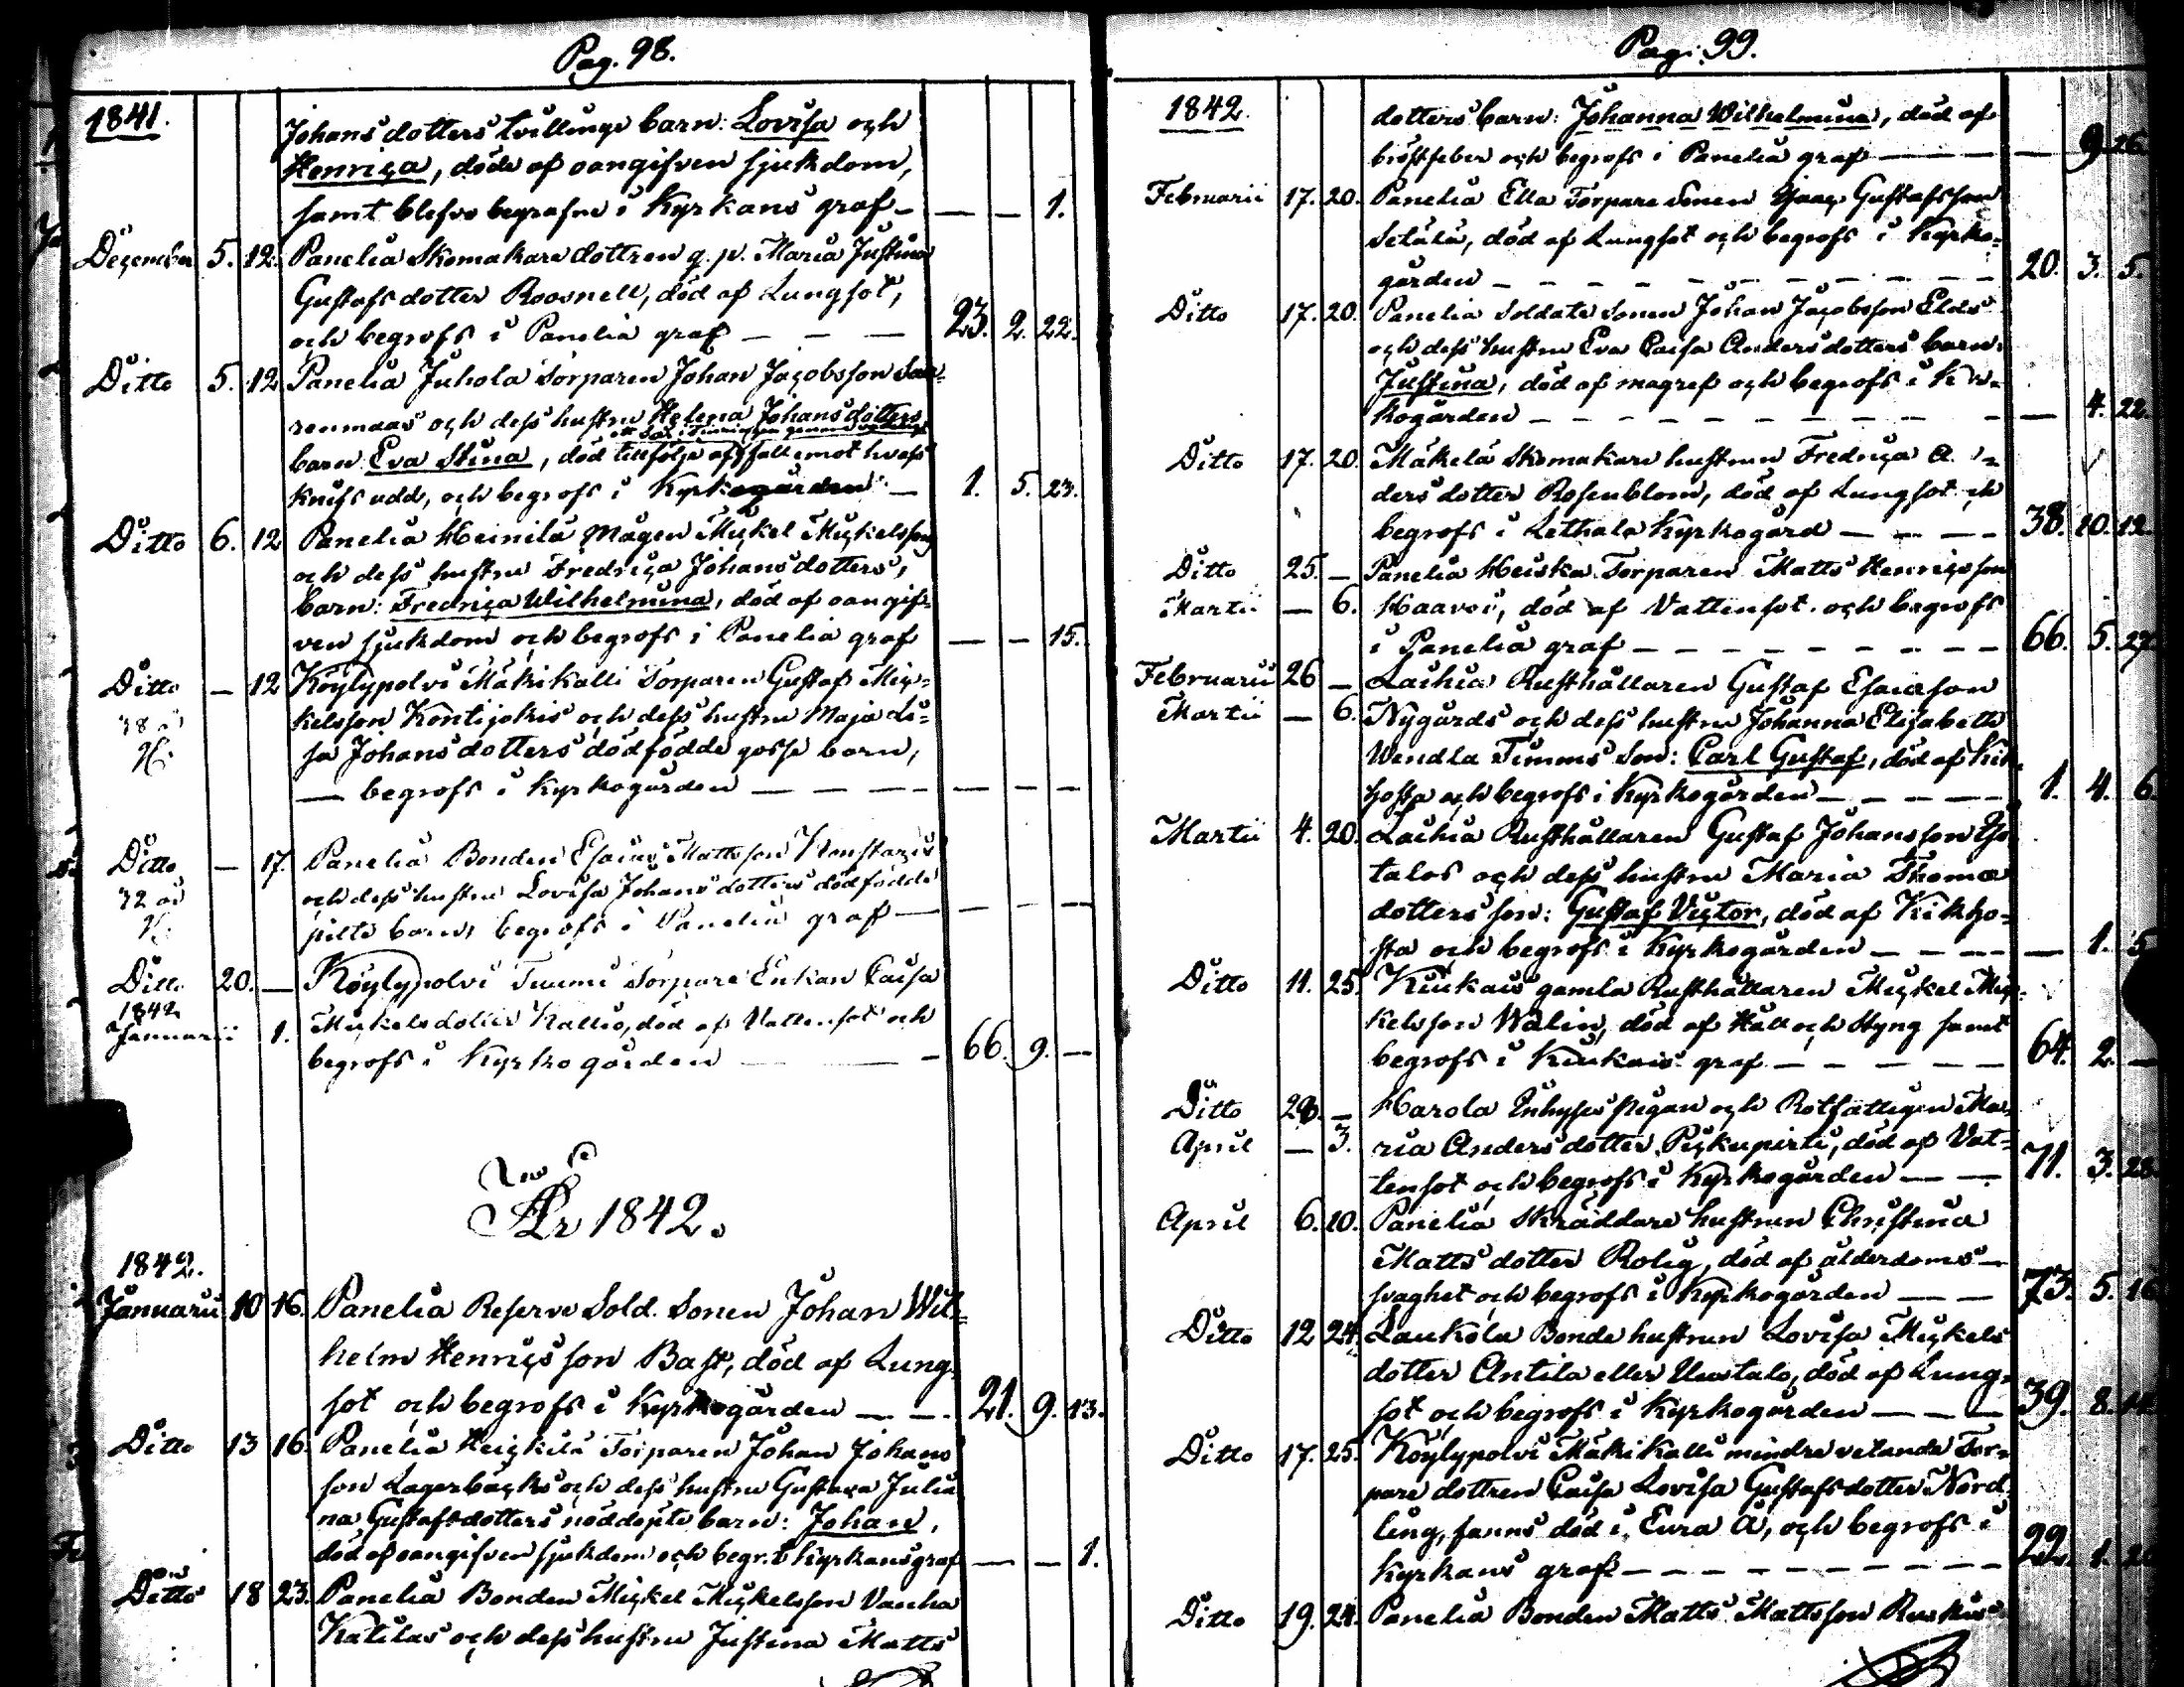 Pag. 98.
1841.
Johansdotters tvillinge barn: Lovisa och
Henrica, döde af oangifven sjukdom,
samt blefvo begrafne i Kyrkans graf — — — 1.
December 5. 12. Panelia Skomakare dottren q. p. Maria Justina
Gustafsdotter Roosnell, död af Lungsot,
och begrofs i Panelia graf — — — 23. 2. 22.
Ditto 5. 12 Panelia Juhola Torparen Johan Jacobsson
renmaas och dess hustru Helena Johansdotters
barn Eva Stina, död tillfölje af fall emot hvass
knifs udd, och begrofs i Kyrkogården — 1. 5. 23.
Ditto 6. 12 Panelia Heinilä Mågen Mickel Mickelsson
och dess hustru Fredrica Johansdotters,
barn: Fredrica Wilhelmina, död af oangif-
ven sjukdom och begrofs i Panelia graf — — 15.
Ditto — 12 Köylypolvi Mäkikalli Torparen Gustaf Mic-
38 år
kelsson Kontijokis och dess hustru Maja Li-
sa Johansdotters dödfödde gosse barn,
— begrofs i Kyrkogården — — — — — —
Ditto — 17. Panelia Bonden Esaias Mattsson
32 år
och dess hustru Lovisa Johansdotters dödfödde
pilte barn, begrofs i Panelia graf — — — —
Ditto 20. — Köylypolvi Tuumi Torpare Enkan Caisa
1842
Januarii 1. Mickelsdotter Kallio, död af Vattensot och
begrofs i Kyrkogården — — — 66. 9. —
År 1842.
1842.
Januarii 10 16. Panelia Reserve Sold. Sonen Johan Wil-
helm Henricsson Bast, död af Lung-
sot och begrofs i Kyrkogården — — 21. 9. 13.
Ditto 13 16. Panelia Heickilä Torparen Johan Johans
son Lagerbäcks och dess hustru Gustava Julia
na Gustafsdotters nöddöpte barn: Johan,
död af oangifven sjukdom och begr. i Kyrkans graf — — 1.
Ditto 18 23. Panelia Bonden Mickel Mickelsson Vanha
Katilas och dess hustru Justina Matts
Pag. 99.
1842.
dotters barn: Johanna Wilhelmina, död af
bröstfeber och begrofs i Panelia graf — — — 9. 26.
Februarii 17. 20. Panelia Ella Torpare Sonen Isaac Gustafsson
Setälä, död af Lungsot och begrofs i Kyrko-
gården — — — — — — 20. 3. 5.
Ditto 17. 20. Panelia Soldate Sonen Johan Jacobsson Elds
och dess hustru Eva Caisa Andersdotters barn:
Justina, död af magref och begrofs i Kyr-
kogården — — — — — — — 4. 22.
Ditto 17. 20. Mäkelä Skomakare hustrun Fredrica An-
dersdotter Rosenblom, död af Lungsot och
begrofs i Lethala Kyrkogård — — — 38. 10. 12.
Ditto 25. — Panelia Heiska Torparen Matts Henricsson
Martii — 6. Haavoi, död af Vattensot och begrofs
i Panelia graf — — — — — — 66. 5. 27.
Februarii 26 — Laihia Rusthållaren Gustaf Esaiasson
Martii — 6. Nygårds och dess hustru Johanna Elisabeth
Wendla Timms Son: Carl Gustaf, död af Kik-
hosta och begrofs i Kyrkogården — — — 1. 4. 6.
Martii 4. 20. Laihia Rusthållaren Gustaf Johansson
talos och dess hustru Maria Thomæ
dotters son: Gustaf Victor, död af Kikho-
sta och begrofs i Kyrkogården — — — — 1. 5
Ditto 11. 25. Kiukais gamla Rusthållaren Mickel Mic-
kelsson Walin, död af Håll och Styng samt
begrofs i Kiukais graf — — — — 64. 2. —
Ditto 28. — Harola Inhyses pigan och Rotfattigen Ma-
April — 3. ria Andersdotter Pickupirti, död af Vat-
tensot och begrofs i Kyrkogården — — 71. 3. 28.
April 6. 10. Panelia Skräddare hustrun Christina
Matts dotter Rolig, död af ålderdoms—
svaghet och begrofs i Kyrkogården — — 73. 5. 16
Ditto 12 24. Laukola Bonde hustrun Lovisa Mickels
dotter Antila eller Uusitalo, död af Lung-
sot och begrofs i Kyrkogården — — — 39. 8. 14
Ditto 17. 25. Köylypolvi Mäki Kalli mindre vetande Tor-
pare dottren Caisa Lovisa Gustafsdotter Nord-
ling, fanns död i Eura Å, och begrofs i
Kyrkans graf — — — — — — 22. 1.
Ditto 19. 24. Panelia Bonden Matts Mattsson